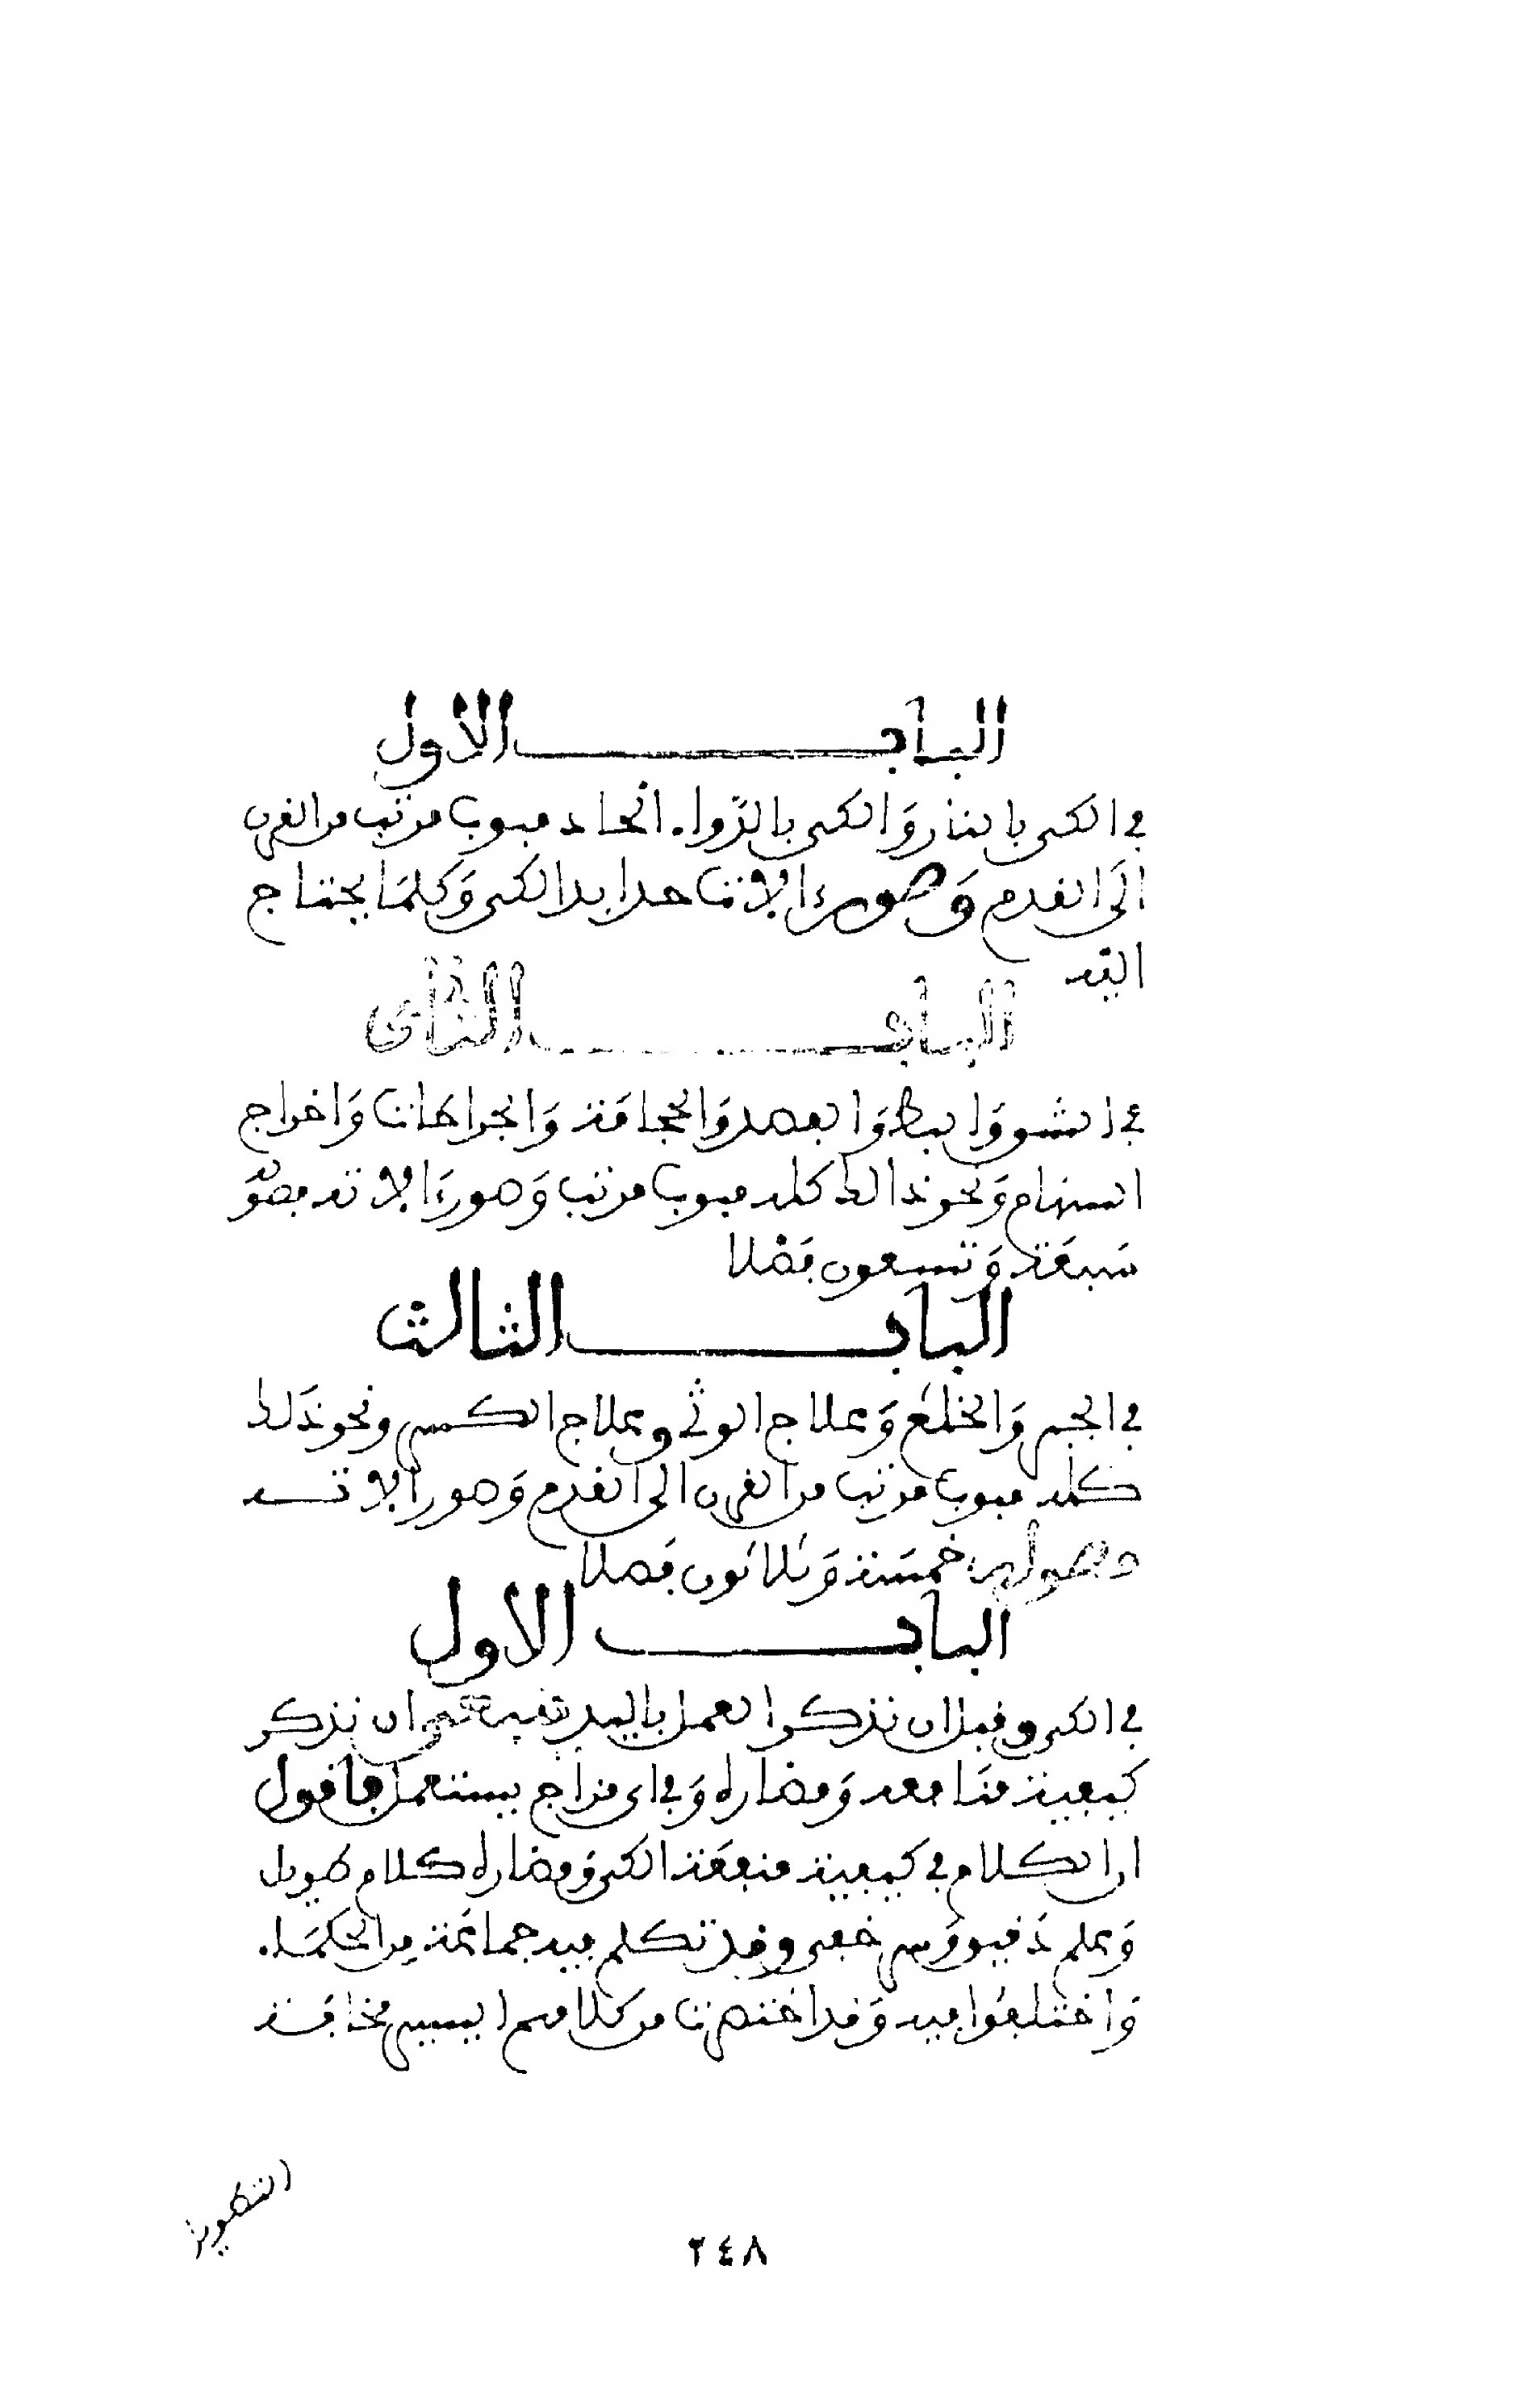 الباب الاول
في الكي بالنار والكي بالدواء الحاد مبوب مرتب من القرن
الى القدم وصورة الالات حدايد الكي وكلما يحتاج
اليه
الباب الثاني
في الشق والبط والفصد والحجامة والجراحات واخراج
السهام ونحو ذالك كله مبوب مرتب وصورة الاته فصو
سبعة وتسعون فصلا
الباب الثالث
في الجبر والخلع وعلاج الوثي وعلاج الكسر ونحو ذلك
كله مبوب مرتب من القرن الى القدم وصور الاته
خمسة وثلاثون فصلا
الباب الاول
في الكي وقبل ان نذكر العمل باليد فينبغي ان نذكر
كيفية منافعه ومضاره وفي اي مزاج يستعمل فاقول
ان الكلام في كيفية منفعة الكي ومضاره كلام طويل
وعلم دقيق وسر خفي وقد تكلم فيه جماعة من الحكماء
واختلفوا فيه وقد اختصرت من كلامهم اليسير مخافة
التطويل
٢٤٨